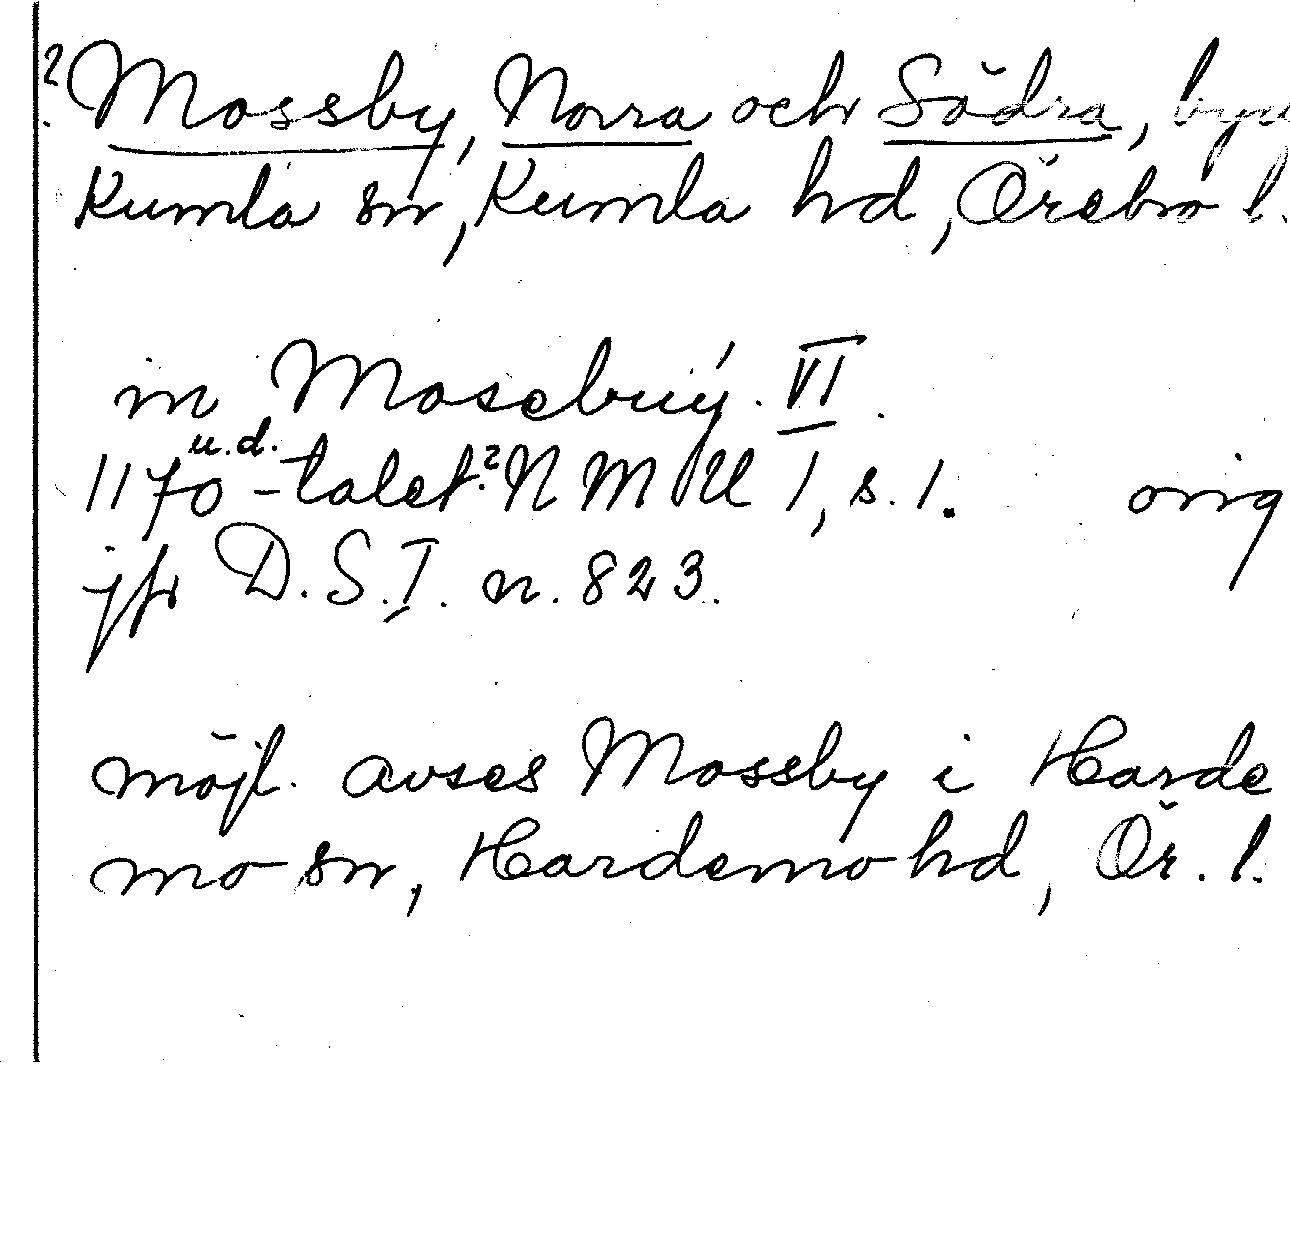 ? Mossby, Norra och Södra, byar
Kumla sn, Kumla hd, Örebro l.
in Mosebruý. VI.
1170-talet u.d.? NMU 1, s. 1. orig
jfr D.S.I. n. 823.
möjl. avses Mossby i Harde
mo sn, Hardemo hd, Ör. l.